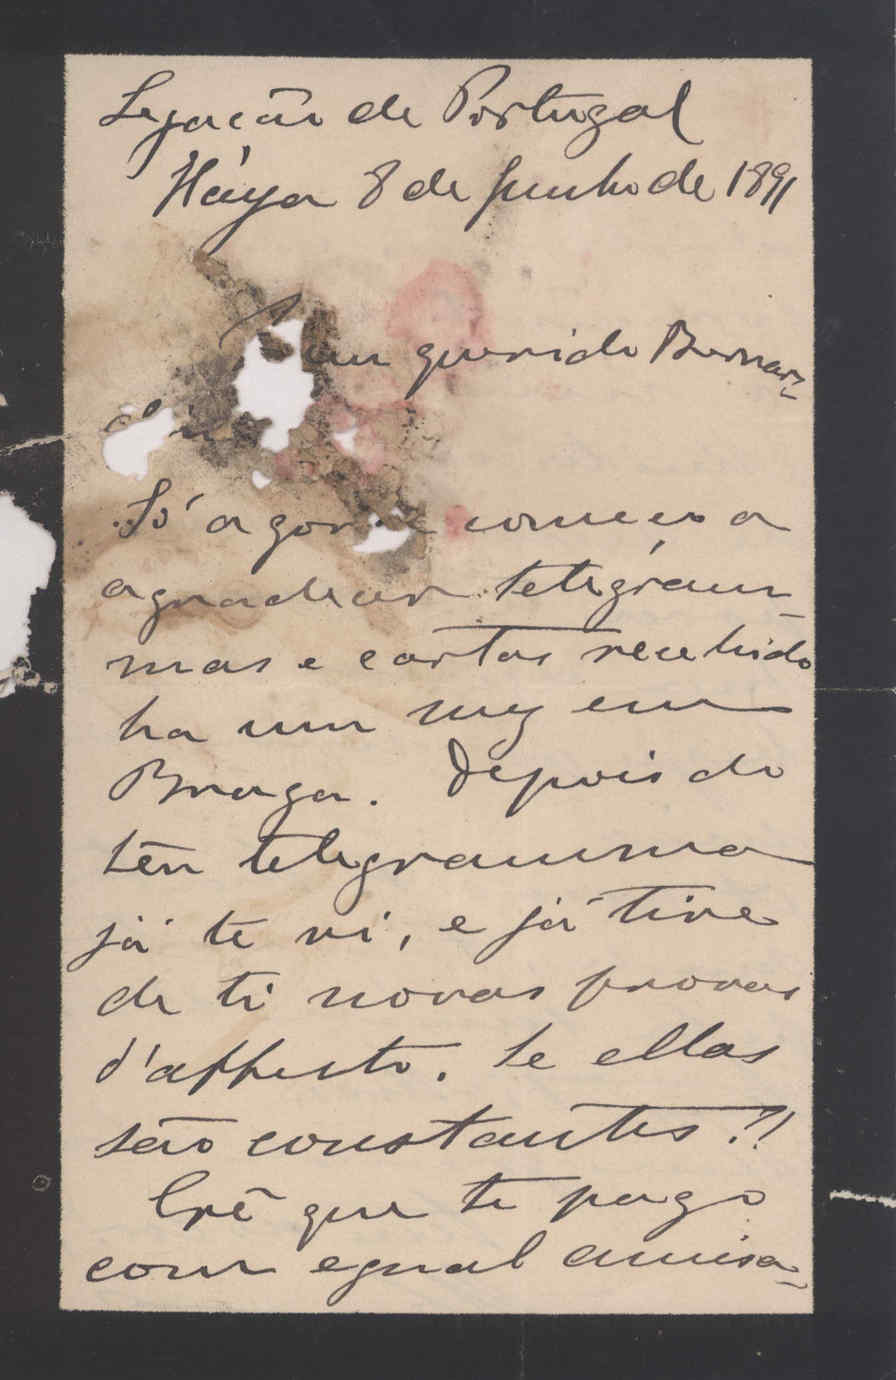 Legação de Portugal
Háya 8 de Junho de 1891
querido Bernar-
Só agora começo a
agradecer telegram-
mas e cartas recebido
ha um mez em
Braga. Depois do
teu telegramma
já te vi, e já tive
de ti novas provas
d'affecto. Se ellas
são constantes?!
Crê que te pago
com egual amisa-